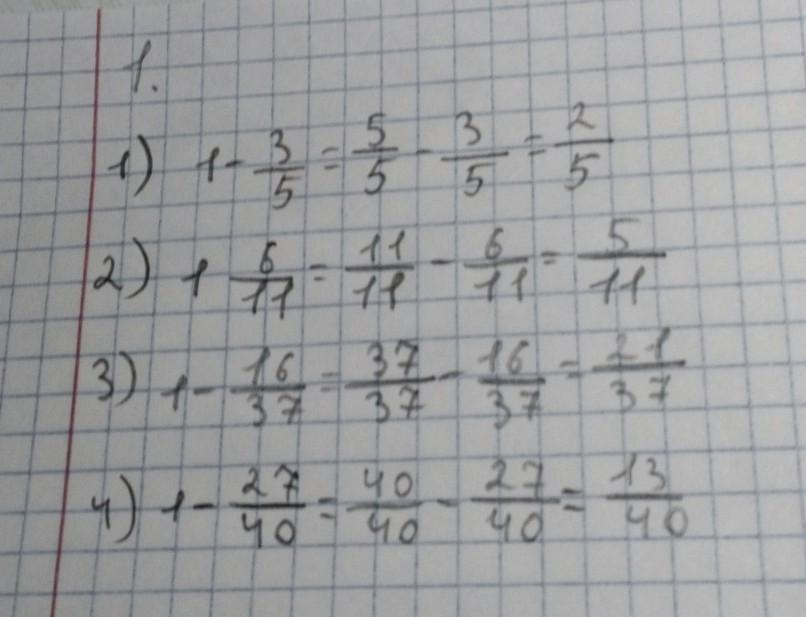 1.
1) 1 - 3/5 = 5/5 - 3/5 = 2/5
2) 1 6/11 = 11/11 - 6/11 = 5/11
3) 1 - 16/37 = 37/37 - 16/37 = 21/37
4) 1 - 27/40 = 40/40 - 27/40 = 13/40